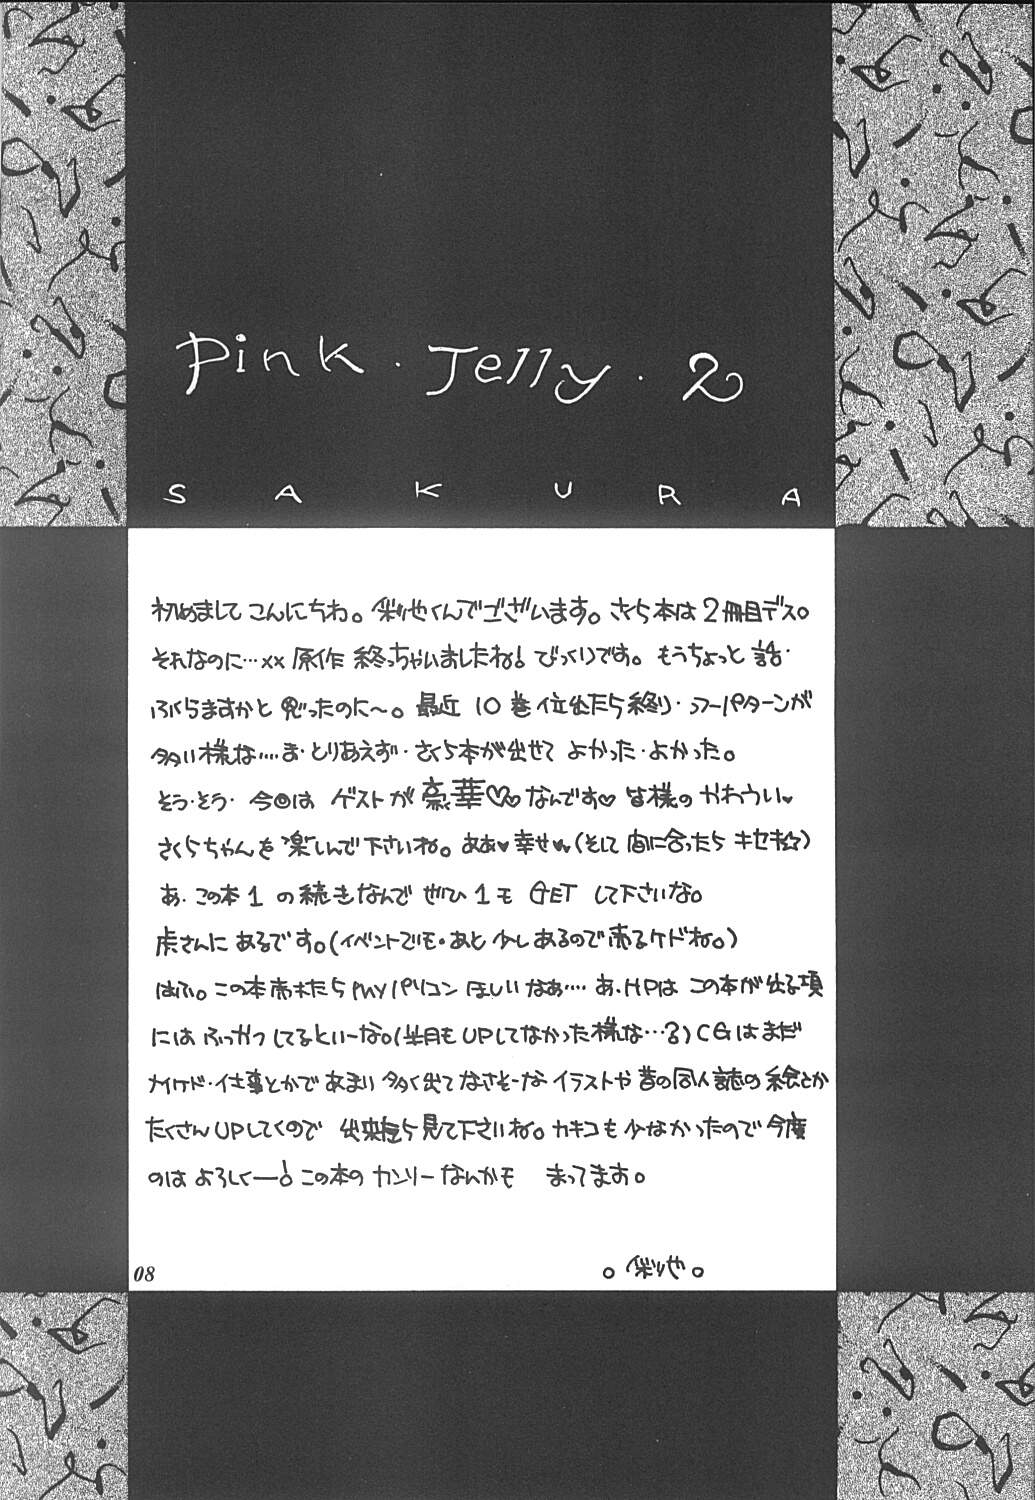 Pink・Jelly・2
SAKURA
初めまして こんにちわ。くんでございます。さくら本は2冊目デス。
それなのに…xx 原作 終っちゃいましたね! びっくりです。もうちょっと 話・
ふくらますかと 思ったのに〜。最近 10巻位出たら終り・つーパターンが
多い様な…。ま・とりあえず・さくら本が出せて よかった・よかった。
そう・そう・今回は ゲストが 豪華♡なんです♡ 皆様の かわうい♥
さくらちゃんを 楽しんで下さいね。ああ♥幸せ♥(そして 間に合ったら キセキ☆)
あ・この本1 の続きなんで ぜひ1も GET して下さいな。
虎さんに あるです。(イベントでも・あと 少しあるので売るケドね。)
はふ。この本売れたら MYパソコン ほしいなあ… あ・HPは この本が出る頃
には ふっかつ してるといーな。(半月も UPしてなかった様な…)CGはまだ
ナイケド・仕事とかで あまり 多く出てなさそーな イラストや 昔の同人誌の絵とか
たくさんUPしてくので 出来たら見て下さいね。カキコも 少なかったので 今度
のは よろしくー! この本の カンソーなんかも まってます。
08